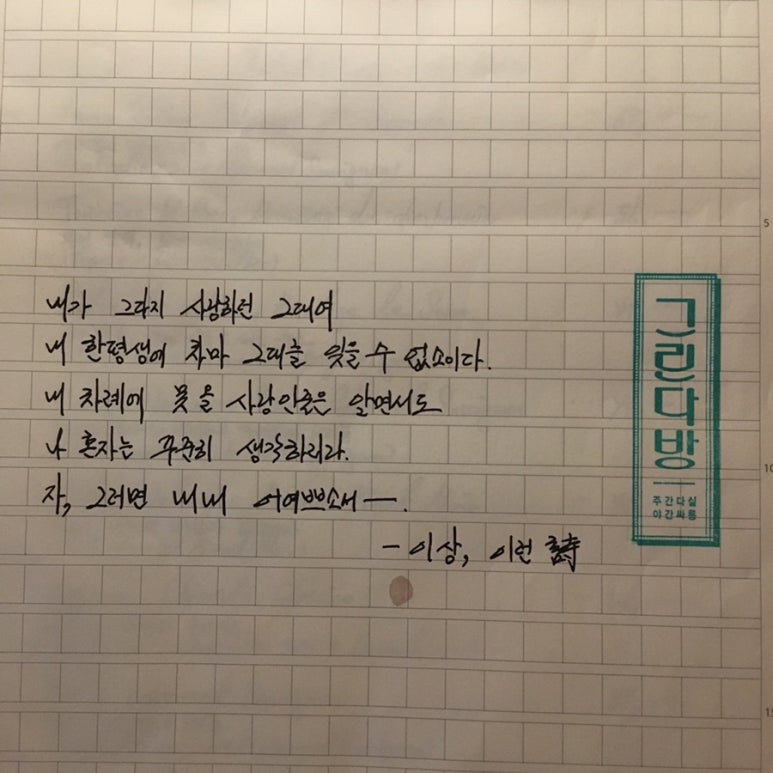 내가 그다지 사랑하던 그대여
내 한평생에 차마 그대를 잊을 수 없소이다.
내 차례에 못 올 사랑인줄은 알면서도
나 혼자는 꾸준히 생각하리라.
자, 그러면 내내 어여쁘소서—.
— 이상, 이런 詩
그린다방
주간다실
야간싸롱
5
10
15